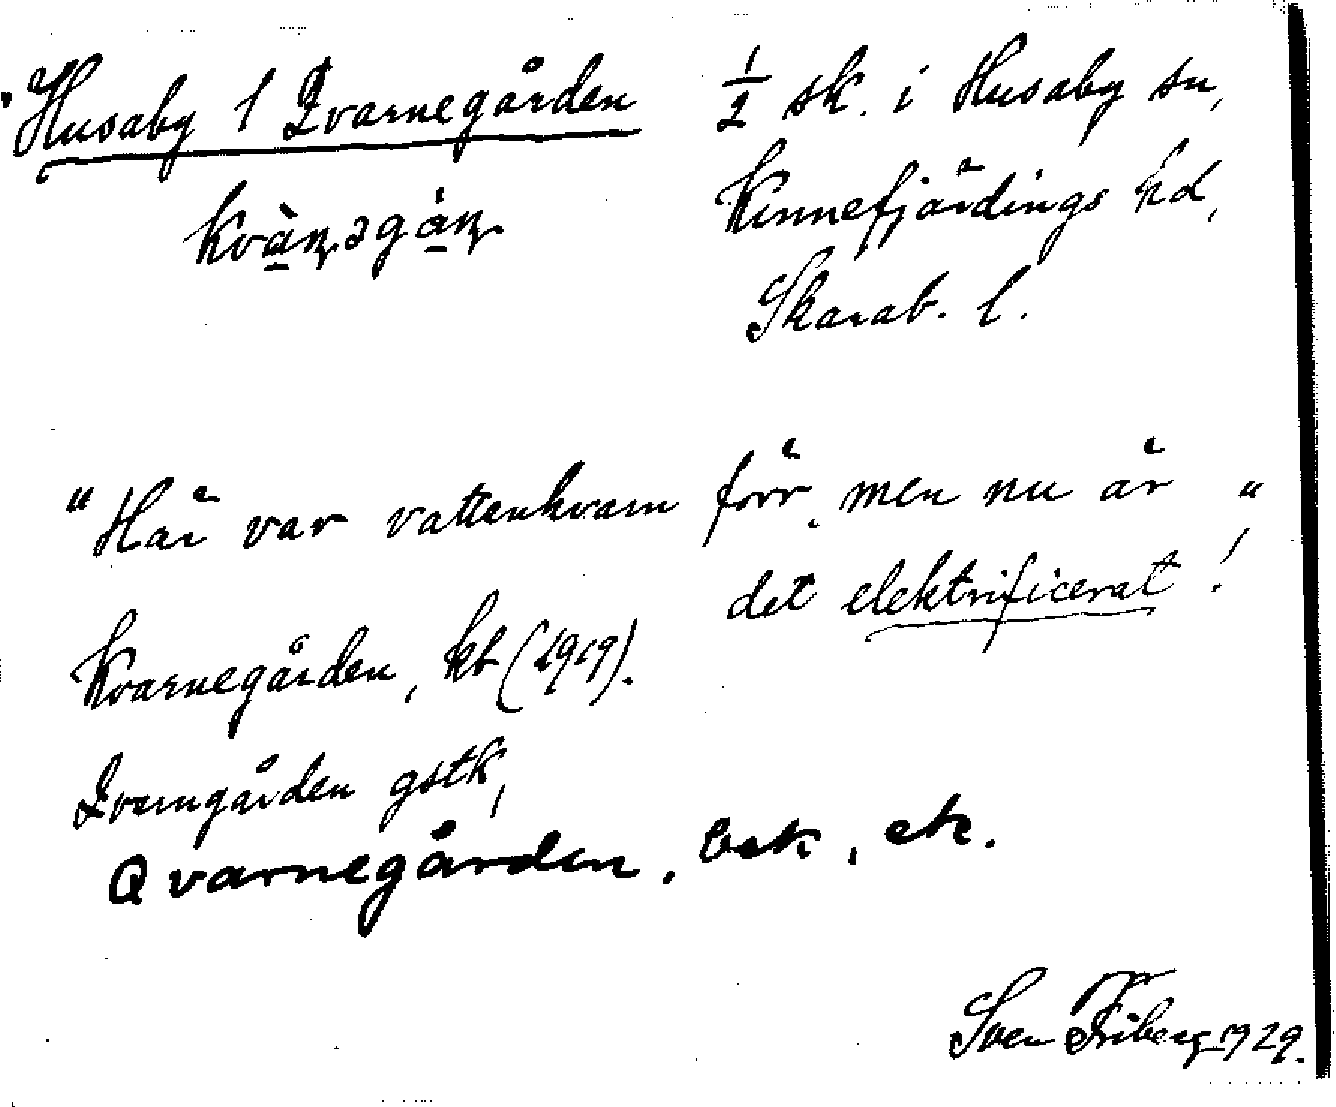 Husaby 1 Qvarnegården
½ sk. i Husaby sn,
Kinnefjärdings hd,
Skarab. l.
"Här var vattenkvarn förr, men nu är "
det elektrificerat!
Kvarnegården, kb (1919).
Qvarngården gstk,
Qvarnegården, Esk, ek.
Sven Friberg 1929.